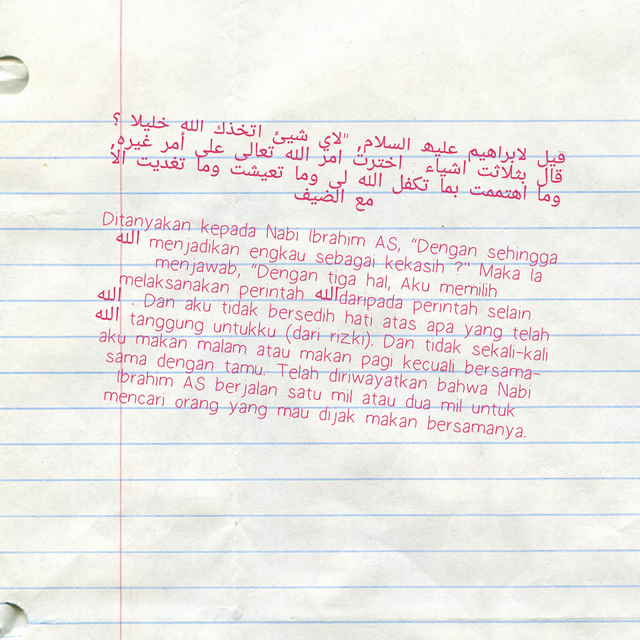 قيل لابراهيم عليه السلام, "لاي شيئ اتخذك الله خليلا ؟
قال بثلاثت اشياء , اخترت امر الله تعالى على أمر غيره,
وما اهتممت بما تكفل الله لى وما تعيشت وما تغديت الا
مع الضيف
Ditanyakan kepada Nabi Ibrahim AS, "Dengan sehingga
الله menjadikan engkau sebagai kekasih ?" Maka Ia
menjawab, "Dengan tiga hal, Aku memilih
melaksanakan perintah اللهdaripada perintah selain
الله . Dan aku tidak bersedih hati atas apa yang telah
الله tanggung untukku (dari rizki). Dan tidak sekali-kali
aku makan malam atau makan pagi kecuali bersama-
sama dengan tamu. Telah diriwayatkan bahwa Nabi
Ibrahim AS berjalan satu mil atau dua mil untuk
mencari orang yang mau dijak makan bersamanya.